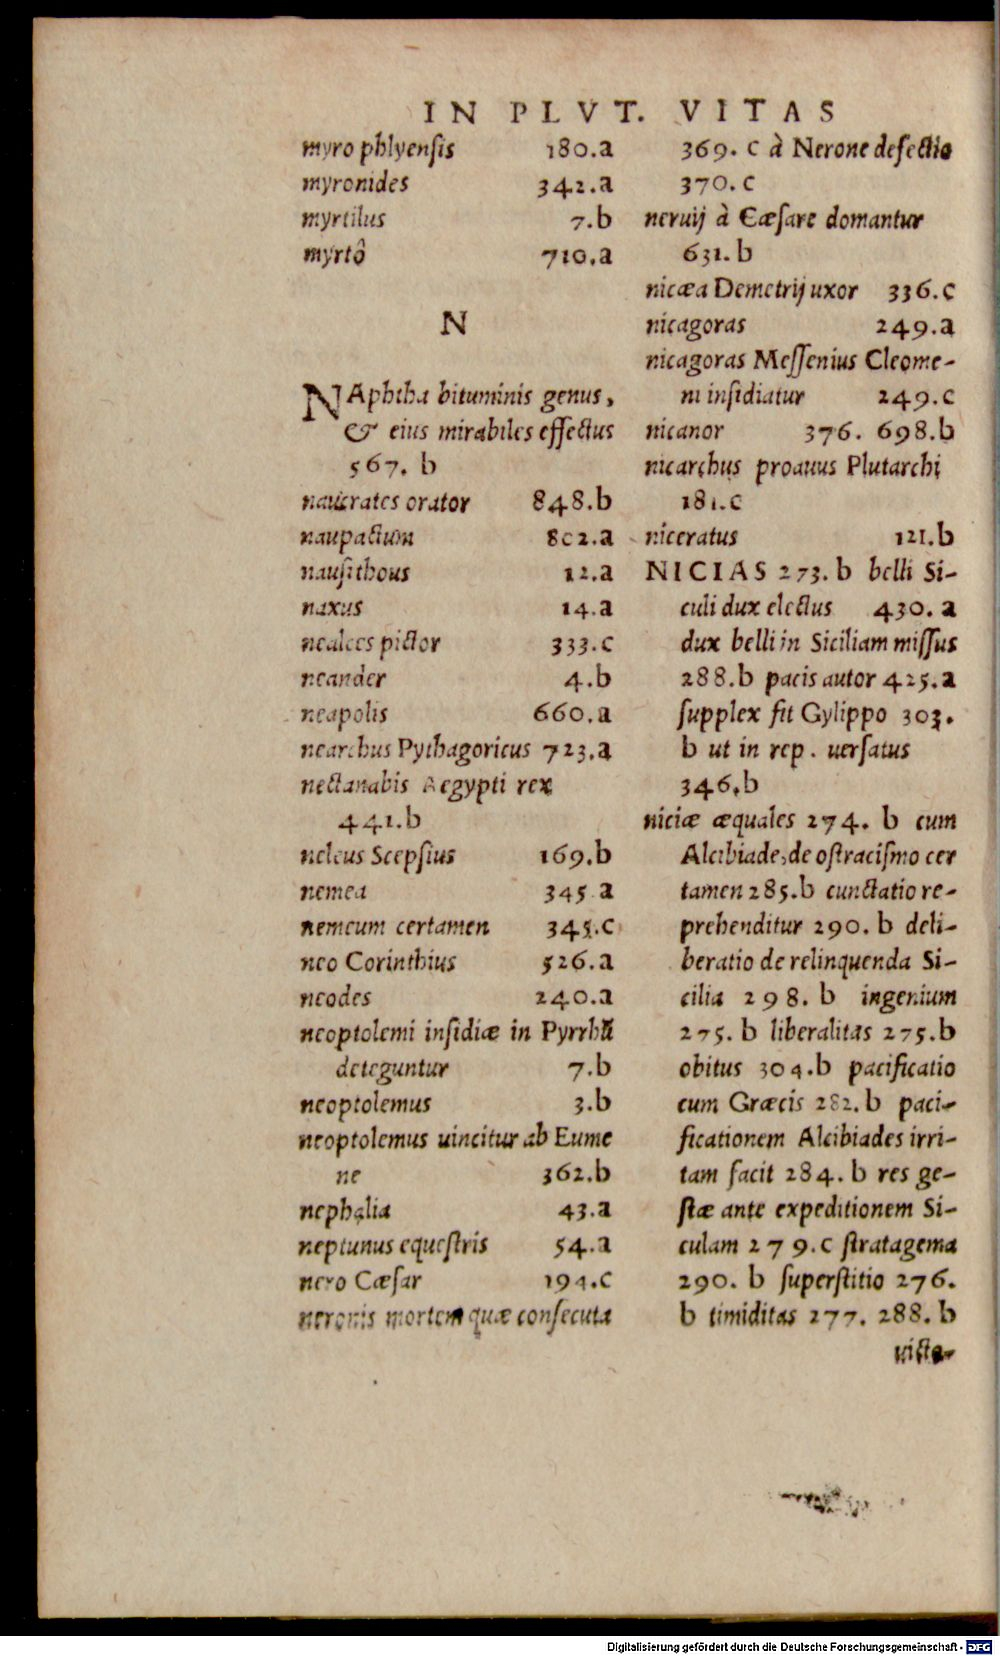 IN PLVT. VITAS
myro phlyensis 180.a
myronides 342.a
myrtilus 7.b
myrtô 710.a
N
NAphtha bituminis genus,
& eius mirabiles effectus
567. b
naucrates orator 848.b
naupactum 802.a
nausithous 12.a
naxus 14.a
nealces pictor 333.c
neander 4.b
neapolis 660.a
nearchus Pythagoricus 723.a
nectanabis Aegypti rex
441.b
neleus Scepsius 169.b
nemea 345 a
nemeum certamen 345.c
neo Corinthius 526.a
neodes 240.a
neoptolemi insidiæ in Pyrrhū
deteguntur 7.b
neoptolemus 3.b
neoptolemus uincitur ab Eume
ne 362.b
nephalia 43.a
neptunus equestris 54.a
nero Cæsar 194.c
neronis mortem quæ consecuta
369. c à Nerone defectio
370. c
neruij à Cæsare domantur
631. b
nicæa Demetrij uxor 336.c
nicagoras 249.a
nicagoras Messenius Cleome-
ni insidiatur 249.c
nicanor 376. 698.b
nicarchus proauus Plutarchi
181.c
niceratus 121.b
NICIAS 273. b belli Si-
culi dux electus 430. a
dux belli in Siciliam missus
288.b pacis autor 425.a
supplex fit Gylippo 303.
b ut in rep. uersatus
346.b
niciæ æquales 274. b cum
Alcibiade, de ostracismo cer
tamen 285.b cunctatio re-
prehenditur 290. b deli-
beratio de relinquenda Si-
cilia 298. b ingenium
275. b liberalitas 275.b
obitus 304.b pacificatio
cum Græcis 282. b paci-
ficationem Alcibiades irri-
tam facit 284. b res ge-
stæ ante expeditionem Si-
culam 279.c stratagema
290. b superstitio 276.
b timiditas 277. 288. b
uicto-
Digitalisierung gefördert durch die Deutsche Forschungsgemeinschaft - DFG